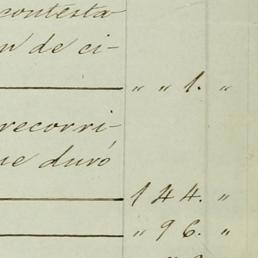 contesta
n de ci-
" " 1. "
recorri-
ue duró
144. "
" 96. "